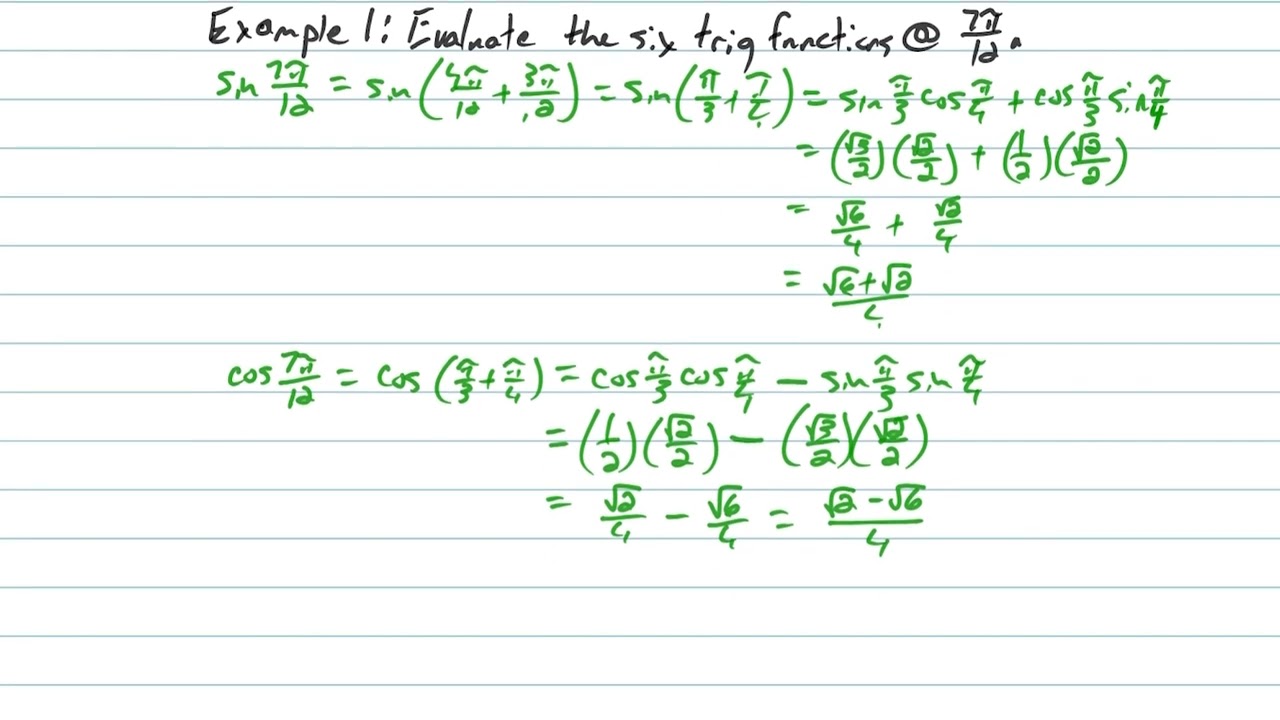 Example 1: Evaluate the six trig functions @ 7π/12.
sin 7π/12 = sin(4π/12 + 3π/12) = sin(π/3 + π/4) = sin π/3 cos π/4 + cos π/3 sin π/4
= (√3/2)(√2/2) + (1/2)(√2/2)
= √6/4 + √2/4
= (√6+√2)/4
cos 7π/12 = cos(π/3 + π/4) = cos π/3 cos π/4 − sin π/3 sin π/4
= (1/2)(√2/2) − (√3/2)(√2/2)
= √2/4 − √6/4 = (√2 − √6)/4